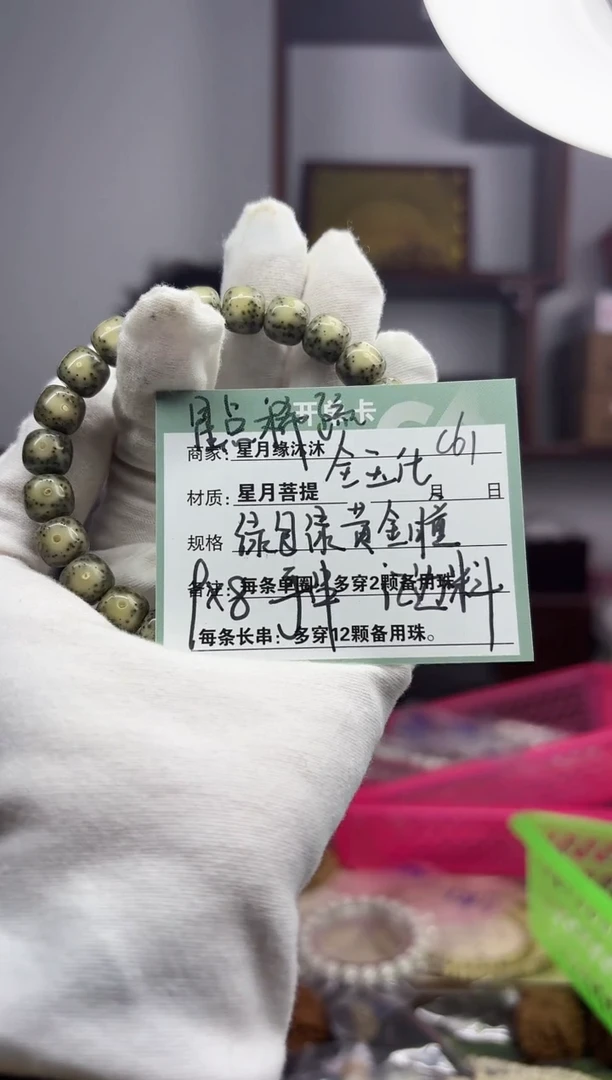 星点料 疏
开 卡
商家：星月缘沐沐
全五仕 C61
材质：星月菩提 月 日
规格 绿月绿黄金瞳
备注：每条单圈：多穿2颗备用珠
9x8 手串 料
每条长串：多穿12颗备用珠。